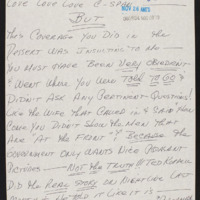 LOVE LOVE LOVE C-SPAN
BUT
NOV 26 1990
THIS COVERAGE YOU DID IN THE
DESERT WAS INSULTING TO ME-
YOU MUST HAVE BEEN VERY OBEDIENT
& WENT WHERE YOU WERE TOLD TO GO &
DIDN'T ASK ANY PERTINENT QUESTIONS!
LIKE THE WIFE THAT CALLED IN & SAID HOW
COME YOU DIDN'T SHOW THE MEN THAT
ARE "AT THE FRONT"? BECAUSE THE
GOVERNMENT ONLY WANTS NICE PLEASANT
PICTURES - NOT THE TRUTH!! TED KOPPEL
DID THE REAL STORY ON NIGHTLINE LAST
IT LIKE IT IS